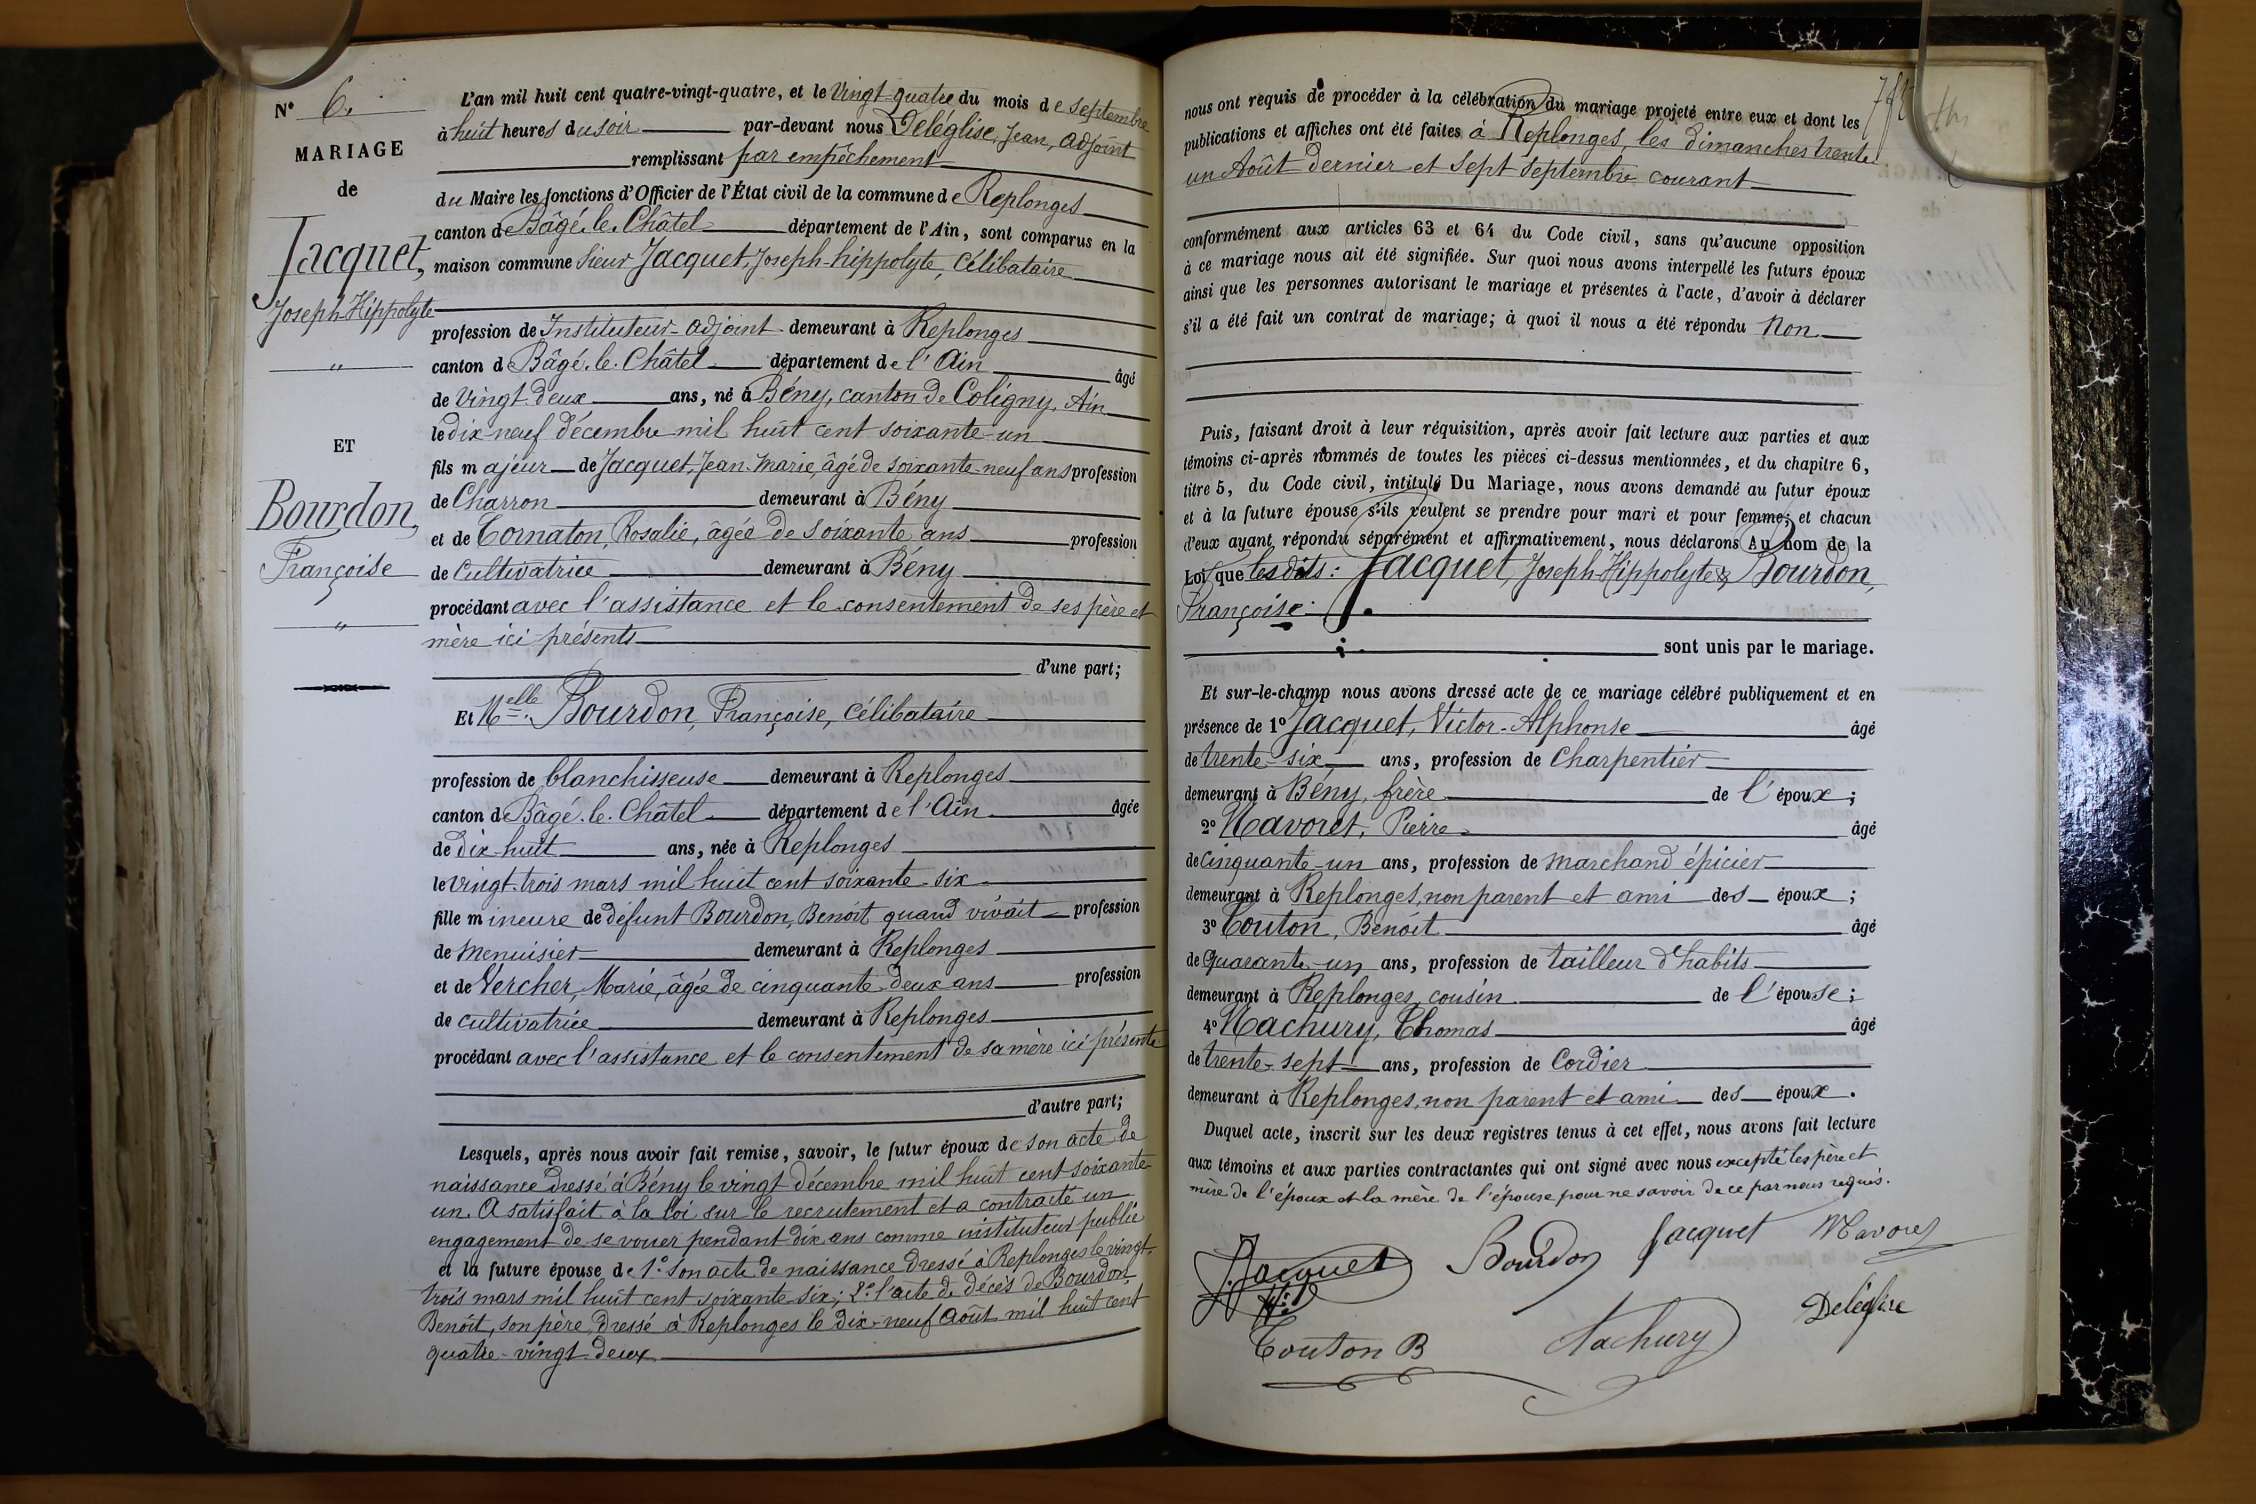 N° 6.
MARIAGE
de
Jacquet,
Joseph-Hippolyte
"
ET
Bourdon,
Françoise
"
L'an mil huit cent quatre-vingt-quatre, et le Vingt-quatre du mois de septembre
à huit heures du soir par-devant nous Deléglise, Jean, adjoint
remplissant par empêchement
du Maire les fonctions d'Officier de l'État civil de la commune de Replonges
canton de Bâgé-le-Châtel département de l'Ain, sont comparus en la
maison commune Sieur Jacquet, Joseph-hippolyte, célibataire
profession de Instituteur-adjoint demeurant à Replonges
canton de Bâgé-le-Châtel département de l'Ain âgé
de Vingt-deux ans, né à Bény, canton de Coligny, Ain
le dix-neuf décembre mil huit cent soixante-un
fils majeur de Jacquet, Jean-Marie, âgé de soixante-neuf ans profession
de Charron demeurant à Bény
et de Cornaton, Rosalie, âgée de soixante ans profession
de Cultivatrice demeurant à Bény
procédant avec l'assistance et le consentement de ses père et
mère ici présents
d'une part;
Et Melle. Bourdon, Françoise, célibataire
profession de blanchisseuse demeurant à Replonges
canton de Bâgé-le-Châtel département de l'Ain âgée
de dix-huit ans, née à Replonges
le vingt-trois mars mil huit cent soixante-six
fille mineure de défunt Bourdon, Benoît, quand vivait profession
de menuisier demeurant à Replonges
et de Vercher, Marie, âgée de cinquante-deux ans profession
de cultivatrice demeurant à Replonges
procédant avec l'assistance et le consentement de sa mère ici présente
d'autre part;
Lesquels, après nous avoir fait remise, savoir, le futur époux de son acte de
naissance dressé à Bény le vingt décembre mil huit cent soixante-
un. A satisfait à la loi sur le recrutement et a contracté un
engagement de se vouer pendant dix ans comme instituteur public
et la future épouse de 1° Son acte de naissance dressé à Replonges le vingt-
trois mars mil huit cent soixante-six; 2° l'acte de décès de Bourdon,
Benoît, son père, dressé à Replonges le dix-neuf Août mil huit cent
quatre-vingt-deux
nous ont requis de procéder à la célébration du mariage projeté entre eux et dont les
publications et affiches ont été faites à Replonges, les dimanches trente
un Août dernier et sept septembre courant
conformément aux articles 63 et 64 du Code civil, sans qu'aucune opposition
à ce mariage nous ait été signifiée. Sur quoi nous avons interpellé les futurs époux
ainsi que les personnes autorisant le mariage et présentes à l'acte, d'avoir à déclarer
s'il a été fait un contrat de mariage; à quoi il nous a été répondu Non
Puis, faisant droit à leur réquisition, après avoir fait lecture aux parties et aux
témoins ci-après nommés de toutes les pièces ci-dessus mentionnées, et du chapitre 6,
titre 5, du Code civil, intitulé Du Mariage, nous avons demandé au futur époux
et à la future épouse s'ils veulent se prendre pour mari et pour femme; et chacun
d'eux ayant répondu séparément et affirmativement, nous déclarons Au nom de la
Loi que lesdits: Jacquet, Joseph-Hippolyte & Bourdon,
Françoise.
sont unis par le mariage.
Et sur-le-champ nous avons dressé acte de ce mariage célébré publiquement et en
présence de 1° Jacquet, Victor-Alphonse âgé
de trente-six ans, profession de Charpentier
demeurant à Bény, frère de l'époux;
2° Navoret, Pierre âgé
de cinquante-un ans, profession de marchand épicier
demeurant à Replonges, non parent et ami des époux;
3° Touton, Benoît âgé
de quarante-un ans, profession de tailleur d'habits
demeurant à Replonges, cousin de l'épouse;
4° Nachury, Thomas âgé
de trente-sept ans, profession de Cordier
demeurant à Replonges, non parent et ami des époux.
Duquel acte, inscrit sur les deux registres tenus à cet effet, nous avons fait lecture
aux témoins et aux parties contractantes qui ont signé avec nous excepté les père et
mère de l'époux et la mère de l'épouse pour ne savoir de ce par nous requis.
J. Jacquet Bourdon Jacquet Navoret
Touton B Nachury Deléglise